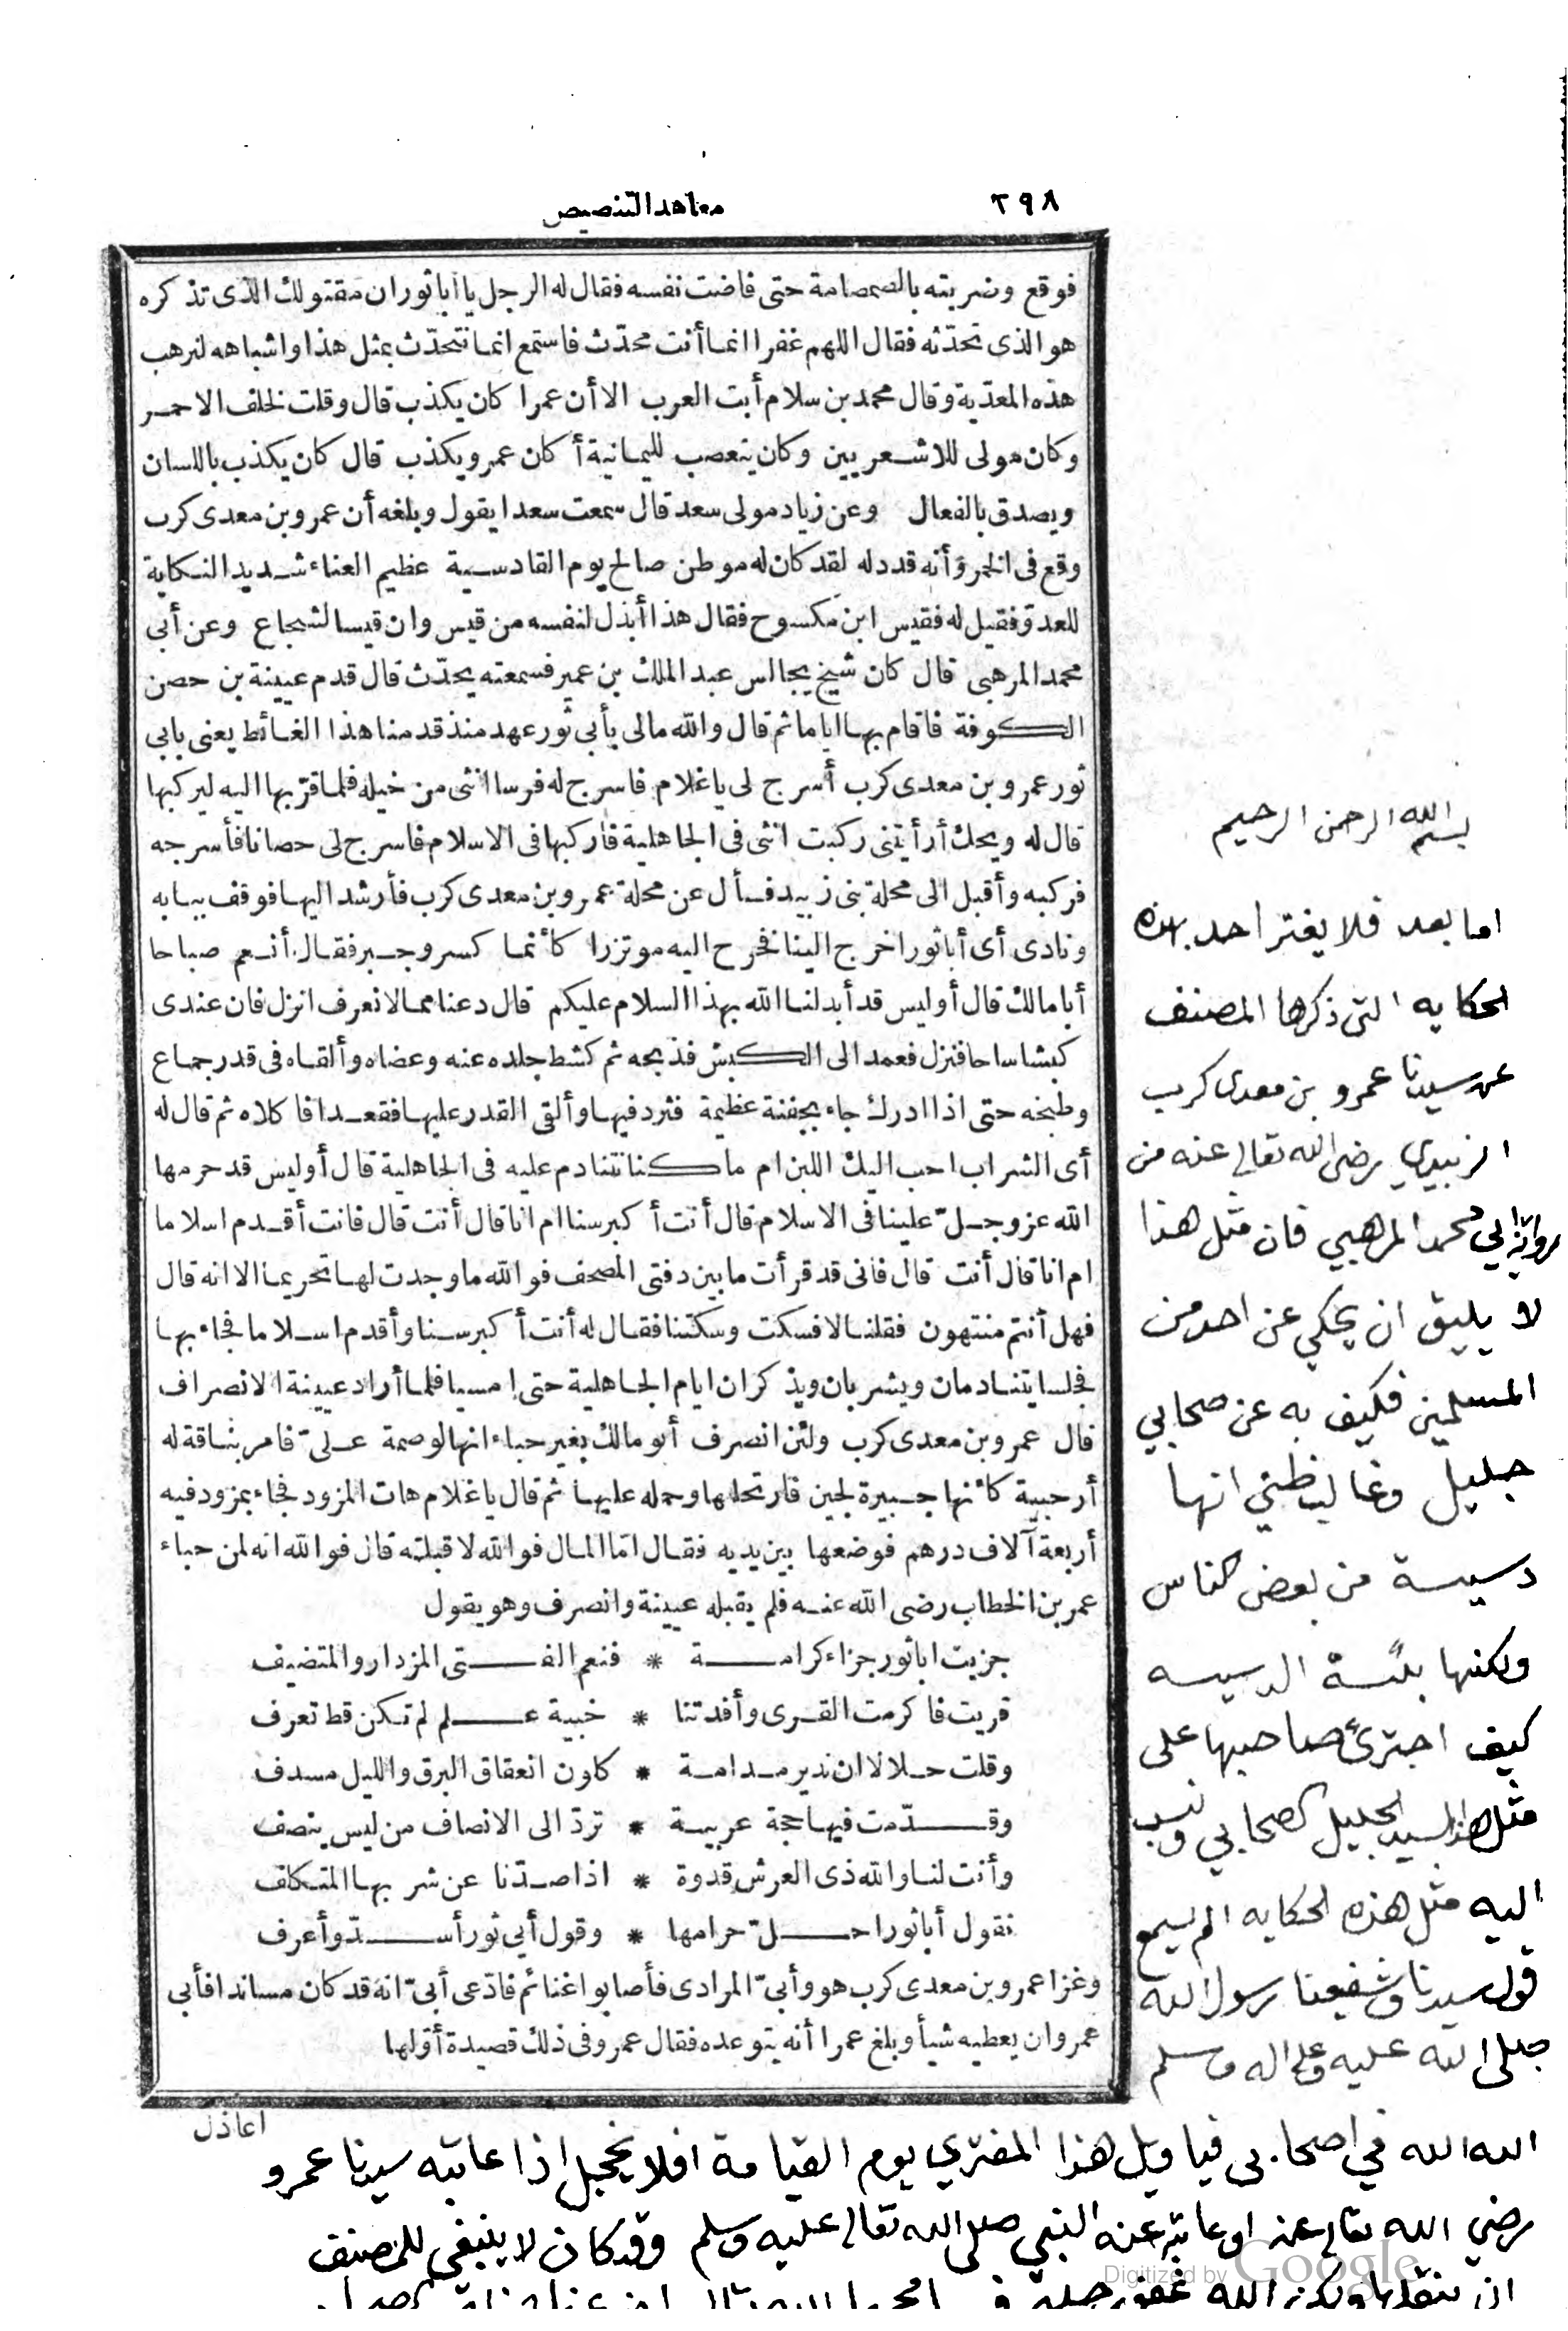 ٢٩٨
معاهد التنصيص
فوقع وضربته بالصمصامة حتى فاضت نفسه فقال له الرجل يا أبا ثور ان مقتولك الذى تذكره
هو الذى تحدّثه فقال اللهم غفرا انما أنت محدّث فاستمع انما نتحدّث بمثل هذا واشباهه لنرهب
هذه المعدّية وقال محمد بن سلام أبت العرب الا أن عمرا كان يكذب قال وقلت لخلف الاحمر
وكان مولى للاشعريين وكان يتعصب لليمانية أكان عمرو يكذب قال كان يكذب باللسان
ويصدق بالفعال وعن زياد مولى سعد قال سمعت سعدا يقول وبلغه أن عمرو بن معدى كرب
وقع فى الخمر وأنه قد دله لقد كان له موطن صالح يوم القادسية عظيم الغناء شديد النكاية
للعدوّ فقيل له فقيس ابن مكسوح فقال هذا أبذل لنفسه من قيس وان قيسا لشجاع وعن أبى
محمد المرهبى قال كان شيخ يجالس عبد الملك بن عمير فسمعته يحدّث قال قدم عيينة بن حصن
الكوفة فاقام بها اياما ثم قال والله مالى بأبى ثور عهد منذ قدمنا هذا الغائط يعنى بابى
ثور عمرو بن معدى كرب أسرج لى ياغلام فاسرج له فرسا انثى من خيله فلما قرّبها اليه ليركبها
قال له ويحك أرأيتنى ركبت انثى فى الجاهلية فاركبها فى الاسلام فاسرج لى حصانا فأسرجه
فركبه وأقبل الى محلة بنى زبيد فسأل عن محلة عمرو بن معدى كرب فأرشد اليها فوقف ببابه
ونادى أى أبا ثور اخرج الينا فخرج اليه موتزرا كأنما كسر وجبر فقال أنعم صباحا
أبا مالك قال أوليس قد أبدلنا الله بهذا السلام عليكم قال دعنا مما لا نعرف انزل فان عندى
كبشا ساحا فنزل فعمد الى الكبش فذبحه ثم كشط جلده عنه وعضاه وألقاه فى قدر جماع
وطبخه حتى اذا ادرك جاء بجفنة عظيمة فثرد فيها وألقى القدر عليها فقعدا فاكلاه ثم قال له
أى الشراب احب اليك اللبن ام ما كنا نتنادم عليه فى الجاهلية قال أوليس قد حرمها
الله عز وجلّ علينا فى الاسلام قال أنت أكبر سنا ام انا قال أنت قال فانت أقدم اسلاما
ام انا قال أنت قال فانى قد قرأت ما بين دفتى المصحف فو الله ما وجدت لها تحريما الا انه قال
فهل أنتم منتهون فقلنا لا فسكت وسكتنا فقال له أنت أكبر سنا وأقدم اسلاما فجاء بها
فجلسا يتنادمان ويشربان ويذكران ايام الجاهلية حتى امسيا فلما أراد عيينة الانصراف
قال عمرو بن معدى كرب ولئن انصرف أبو مالك بغير حباء انها لوصمة علىّ فامر بناقة له
أرحبية كأنها جبيرة لجين فارتحلها وحمله عليها ثم قال ياغلام هات المزود فجاء بمزود فيه
أربعة آلاف درهم فوضعها بين يديه فقال امّا المال فوالله لا قبلته قال فوالله انه لمن حباء
عمر بن الخطاب رضى الله عنه فلم يقبله عيينة وانصرف وهو يقول
جزيت ابا ثور جزاء كرامة * فنعم الفتى المزدار والمتضيف
قريت فاكرمت القرى وأفدتنا * خبية علم لم تكن قط تعرف
وقلت حلالا ان ندير مدامة * كاون انعقاق البرق والليل مسدف
وقدّمت فيها حجة عربية * تردّ الى الانصاف من ليس ينصف
وأنت لنا والله ذى العرش قدوة * اذا صدّنا عن شربها المتكلف
نقول أبا ثور احلّ حرامها * وقول أبى ثور أسدّ وأعرف
وغزا عمرو بن معدى كرب هو وأبىّ المرادى فأصابوا غنائم فادّعى أبىّ انه قد كان مساندا فأبى
عمرو ان يعطيه شيأ وبلغ عمرا أنه يتوعده فقال عمرو فى ذلك قصيدة أوّلها
اعاذل
بسم الله الرحمن الرحيم
اما بعد فلا يغتر احد بهذه
الحكايه التى ذكرها المصنف
عن سيدنا عمرو بن معدى كرب
الزبيدي رضى الله تعالى عنه من
رواية ابي محمد المرهبي فان مثل هذا
لا يليق ان يحكي عن احد من
المسلمين فكيف به عن صحابي
جليل وغالب ظني انها
دسيسة من بعض الناس
ولكنها بئسة الدسيسه
كيف اجترئ صاحبها على
مثل هذا السيد الجليل الصحابي ونسب
اليه مثل هذه الحكايه الم يسمع
قول سيدنا وشفيعنا رسول الله
صلى الله عليه وعلى اله وسلم
الله الله في اصحابى فيا ويل هذا المفتري يوم القيامة افلا يخجل اذا عاتبه سيدنا عمرو
رضي الله تعالى عنه او عاتبه عنه النبي صلى الله تعالى عليه وسلم وقد كان لا ينبغي للمصنف
ان ينقلها ولكن الله غفور
Digitized by Google